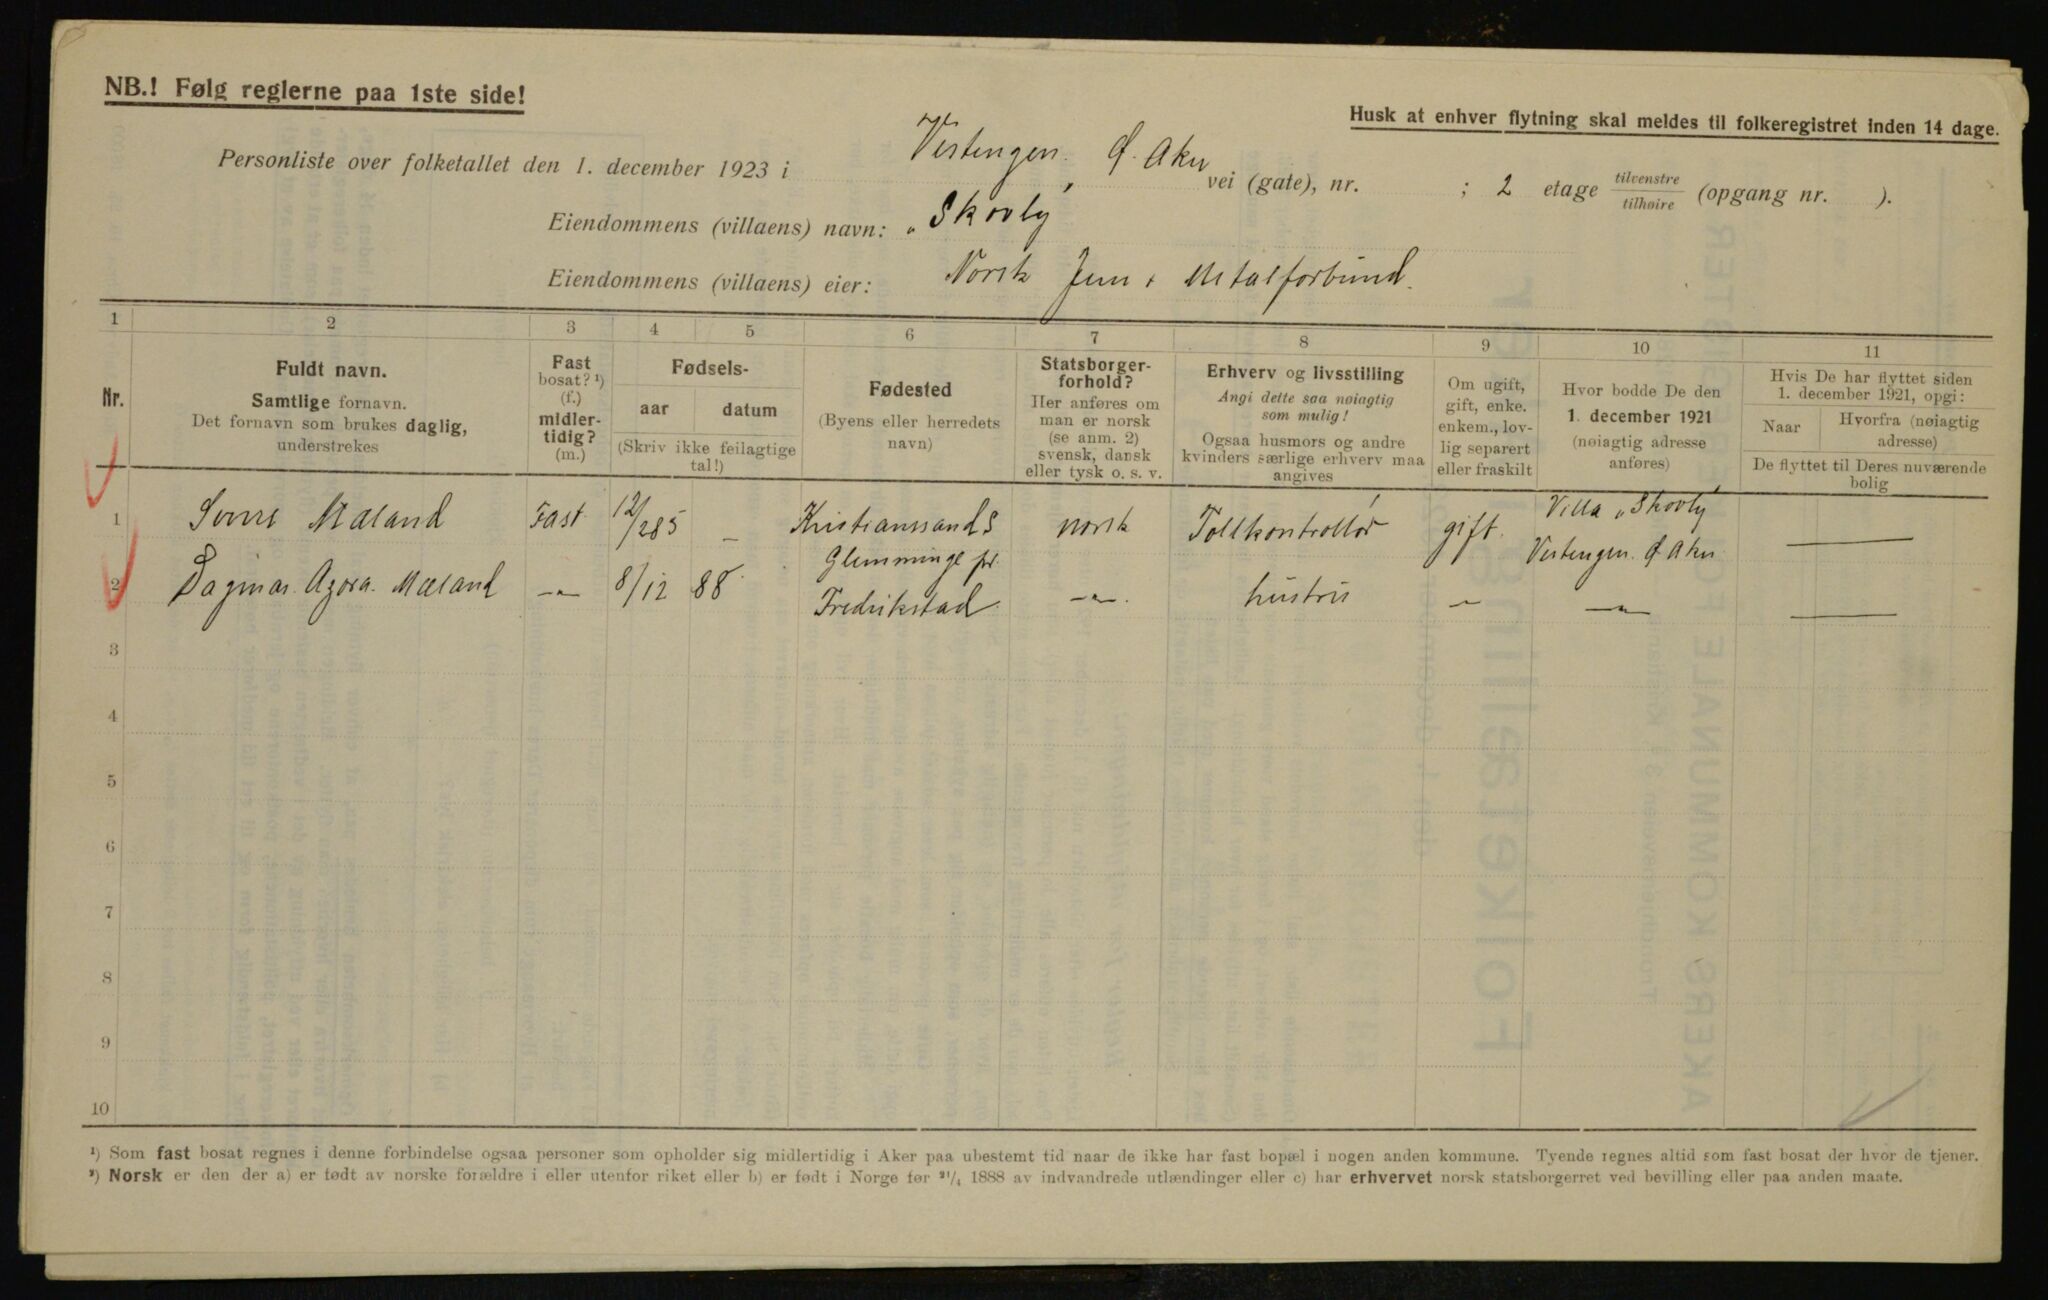 NB.! Følg reglerne paa 1ste side!
Husk at enhver flytning skal meldes til folkeregistret inden 14 dage.
Personliste over folketallet den 1. december 1923 i Vestengen. Ø. Aker vei (gate), nr. ; 2 etage tilvenstre tilhøire (opgang nr. ).
Eiendommens (villaens) navn: „Skovly"
Eiendommens (villaens) eier: Norsk Jern & Metalforbund.
1 2 3 4 5 6 7 8 9 10 11
Nr.
Fuldt navn.
Samtlige fornavn.
Det fornavn som brukes daglig,
understrekes
Fast
bosat? ¹)
(f.)
midler-
tidig?
(m.)
Fødsels-
aar datum
(Skriv ikke feilagtige
tal!)
Fødested
(Byens eller herredets
navn)
Statsborger-
forhold?
Her anføres om
man er norsk
(se anm. 2)
svensk, dansk
eller tysk o. s. v.
Erhverv og livsstilling
Angi dette saa nøiagtig
som mulig!
Ogsaa husmors og andre
kvinders særlige erhverv maa
angives
Om ugift,
gift, enke.
enkem., lov-
lig separert
eller fraskilt
Hvor bodde De den
1. december 1921
(nøiagtig adresse
anføres)
Hvis De har flyttet siden
1. december 1921, opgi:
Naar Hvorfra (nøiagtig
adresse)
De flyttet til Deres nuværende
bolig
1 Mæland Fast 12/2 85 – Kristianssand S norsk Tollkontrollør gift. Villa „Skovly" Vestengen. Ø Aker —
2 Dagmar Agora. Mæland –"– 8/12 88 Glemminge pr. Fredrikstad –"–. hustru –"– –"– —
3
4
5
6
7
8
9
10
¹) Som fast bosat regnes i denne forbindelse ogsaa personer som opholder sig midlertidig i Aker paa ubestemt tid naar de ikke har fast bopæl i nogen anden kommune. Tyende regnes altid som fast bosat der hvor de tjener.
²) Norsk er den der a) er født av norske forældre i eller utenfor riket eller b) er født i Norge før ²¹/₄ 1888 av indvandrede utlændinger eller c) har erhvervet norsk statsborgerret ved bevilling eller paa anden maate.